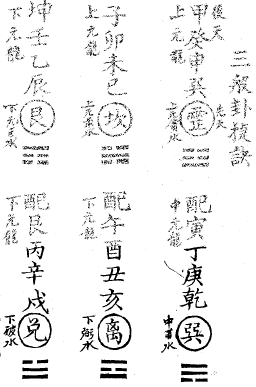 三般卦訣
後天
甲癸申巽
上元龍
先天
配寅丁庚乾
中元龍
巽
子卯未巳
上元龍
坎
配午酉丑亥
下元龍
离
下弼水
坤壬乙辰
下元龍
艮
配艮丙辛戌
下元龍
兌
下破水